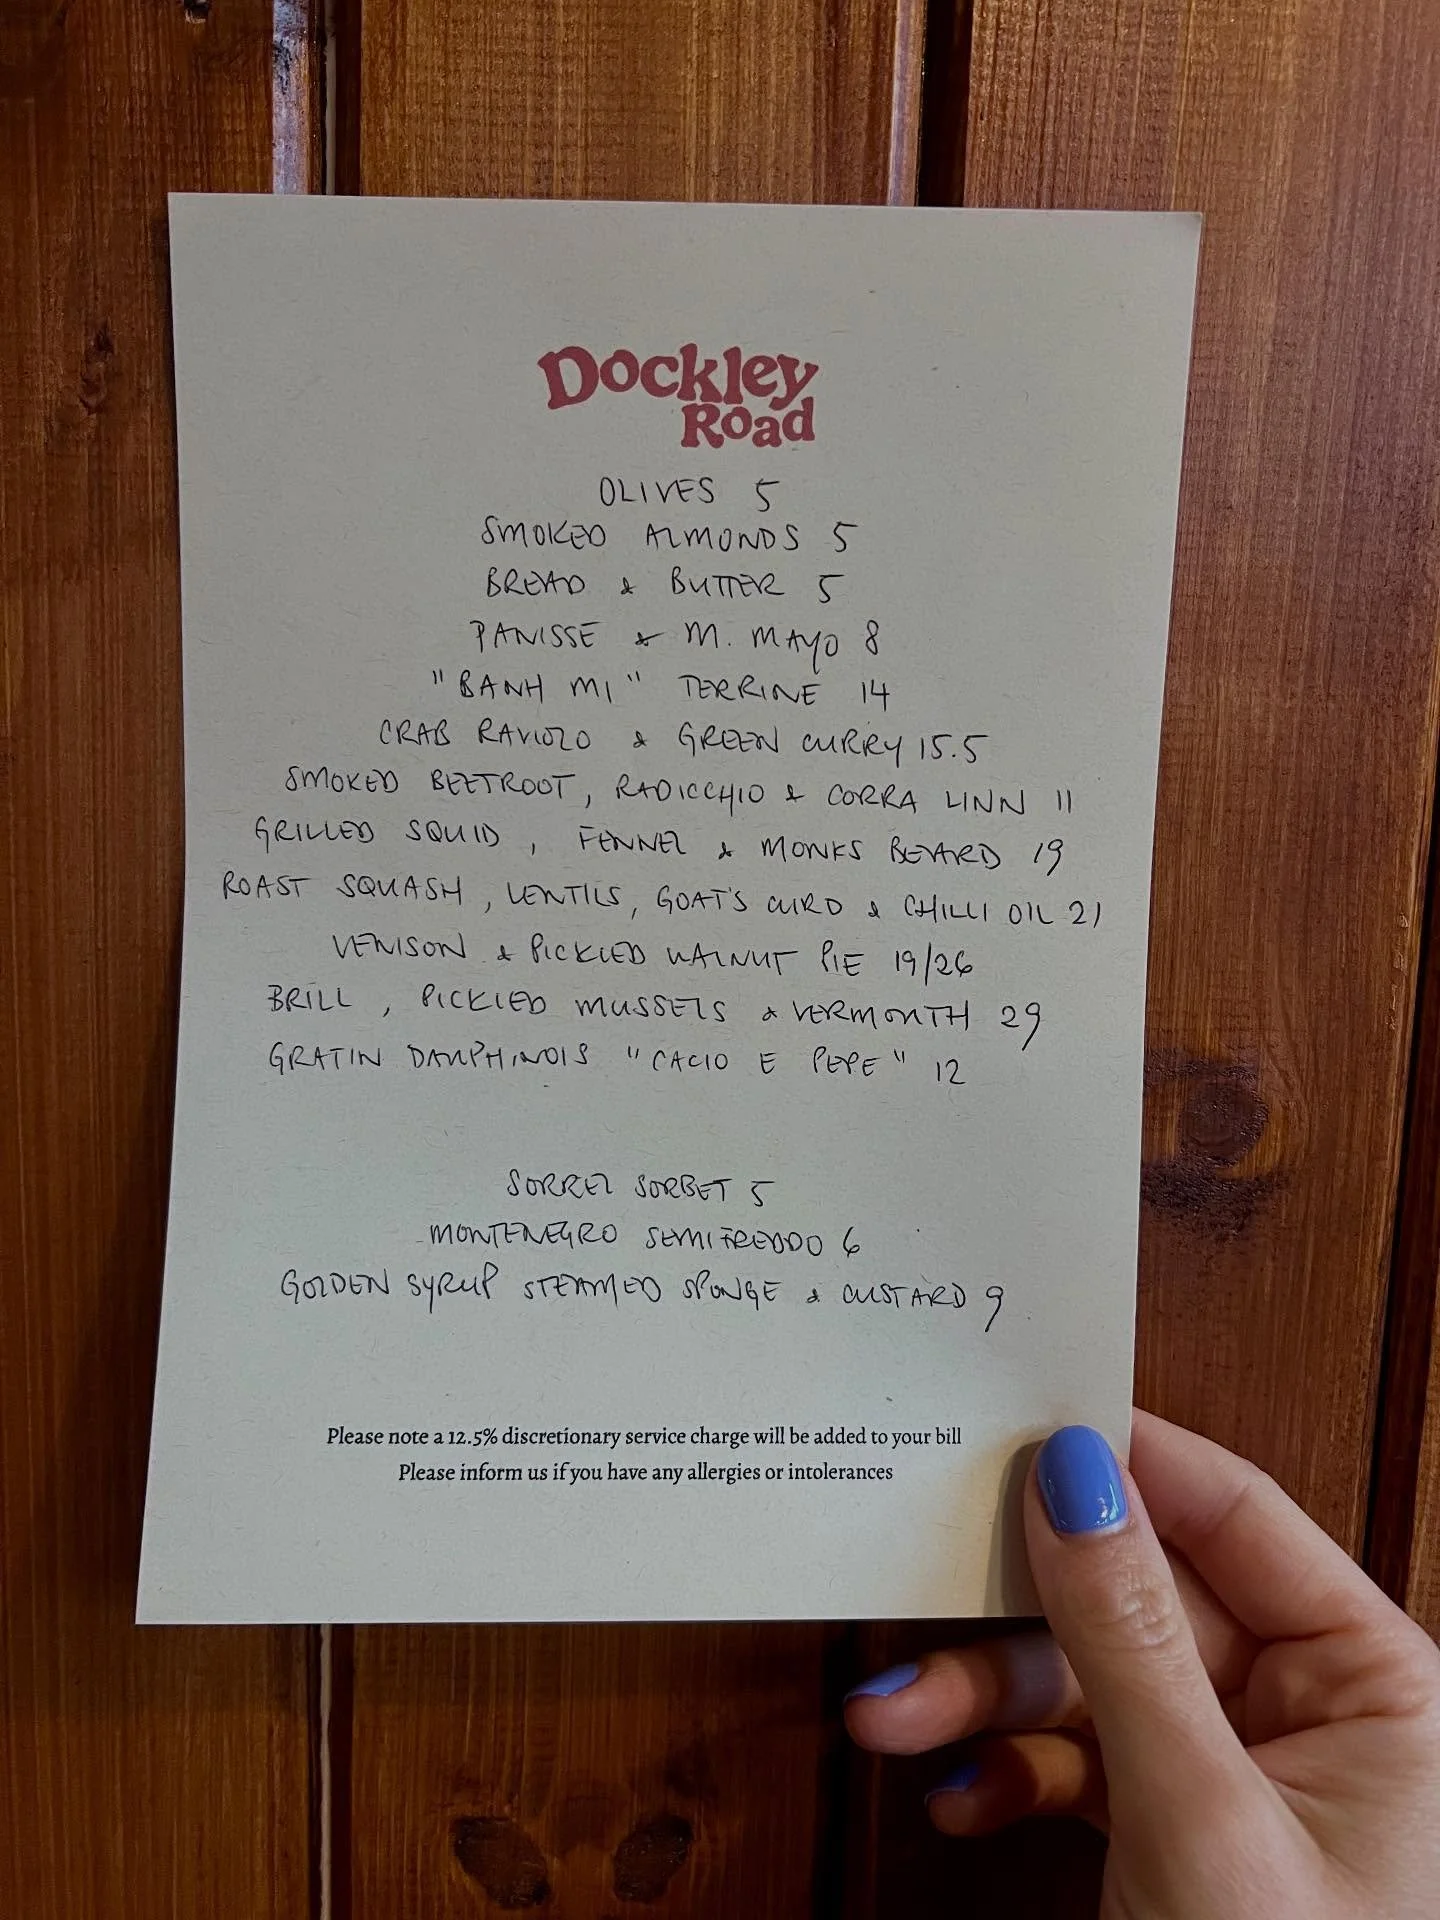 Dockley
Road
OLIVES 5
SMOKED ALMONDS 5
BREAD & BUTTER 5
PANISSE & M. MAYO 8
"BANH MI" TERRINE 14
CRAB RAVIOLO & GREEN CURRY 15.5
SMOKED BEETROOT, RADICCHIO & CORRA LINN 11
GRILLED SQUID, FENNEL & MONKS BEARD 19
ROAST SQUASH, LENTILS, GOAT'S CURD & CHILLI OIL 21
VENISON & PICKLED WALNUT PIE 19/26
BRILL, PICKLED MUSSELS & VERMOUTH 29
GRATIN DAUPHINOIS "CACIO E PEPE" 12
SORREL SORBET 5
MONTENEGRO SEMIFREDDO 6
GOLDEN SYRUP STEAMED SPONGE & CUSTARD 9
Please note a 12.5% discretionary service charge will be added to your bill
Please inform us if you have any allergies or intolerances